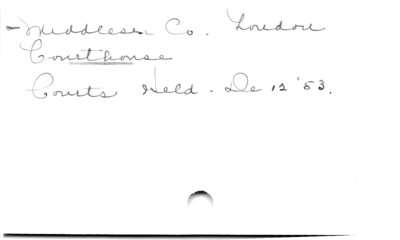 - Middlesex Co. London
Courthouse
Courts Held. De 12 '53.